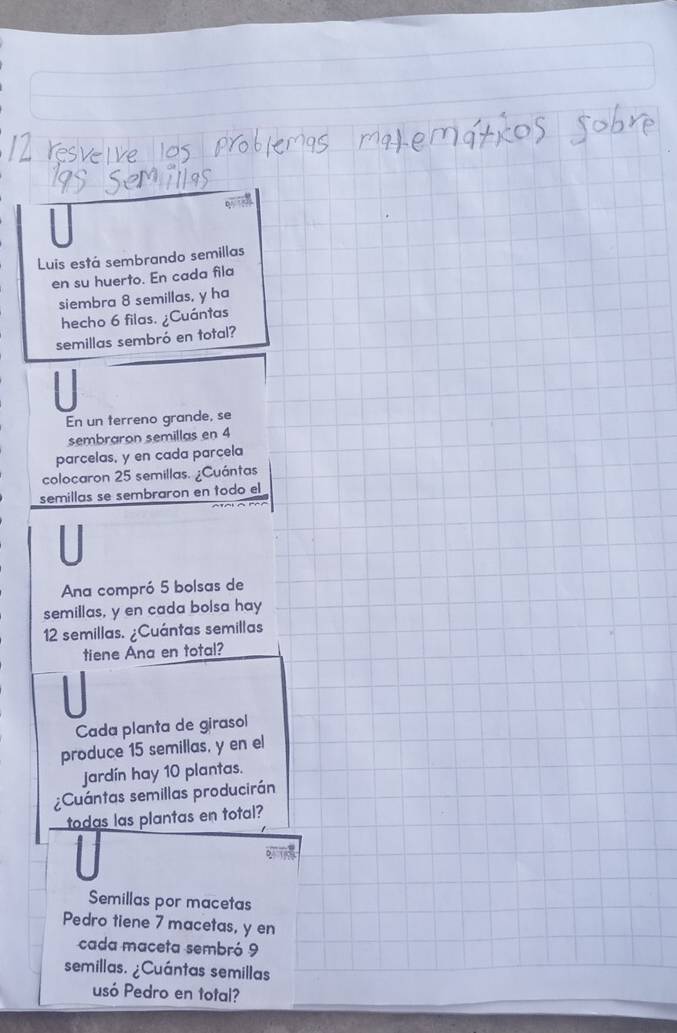 12 resvelve los problemas matemáticos sobre
las semillas
Luis está sembrando semillas
en su huerto. En cada fila
siembra 8 semillas, y ha
hecho 6 filas. ¿Cuántas
semillas sembró en total?
En un terreno grande, se
sembraron semillas en 4
parcelas, y en cada parcela
colocaron 25 semillas. ¿Cuántas
semillas se sembraron en todo el
Ana compró 5 bolsas de
semillas, y en cada bolsa hay
12 semillas. ¿Cuántas semillas
tiene Ana en total?
Cada planta de girasol
produce 15 semillas, y en el
jardín hay 10 plantas.
¿Cuántas semillas producirán
todas las plantas en total?
Semillas por macetas
Pedro tiene 7 macetas, y en
cada maceta sembró 9
semillas. ¿Cuántas semillas
usó Pedro en total?